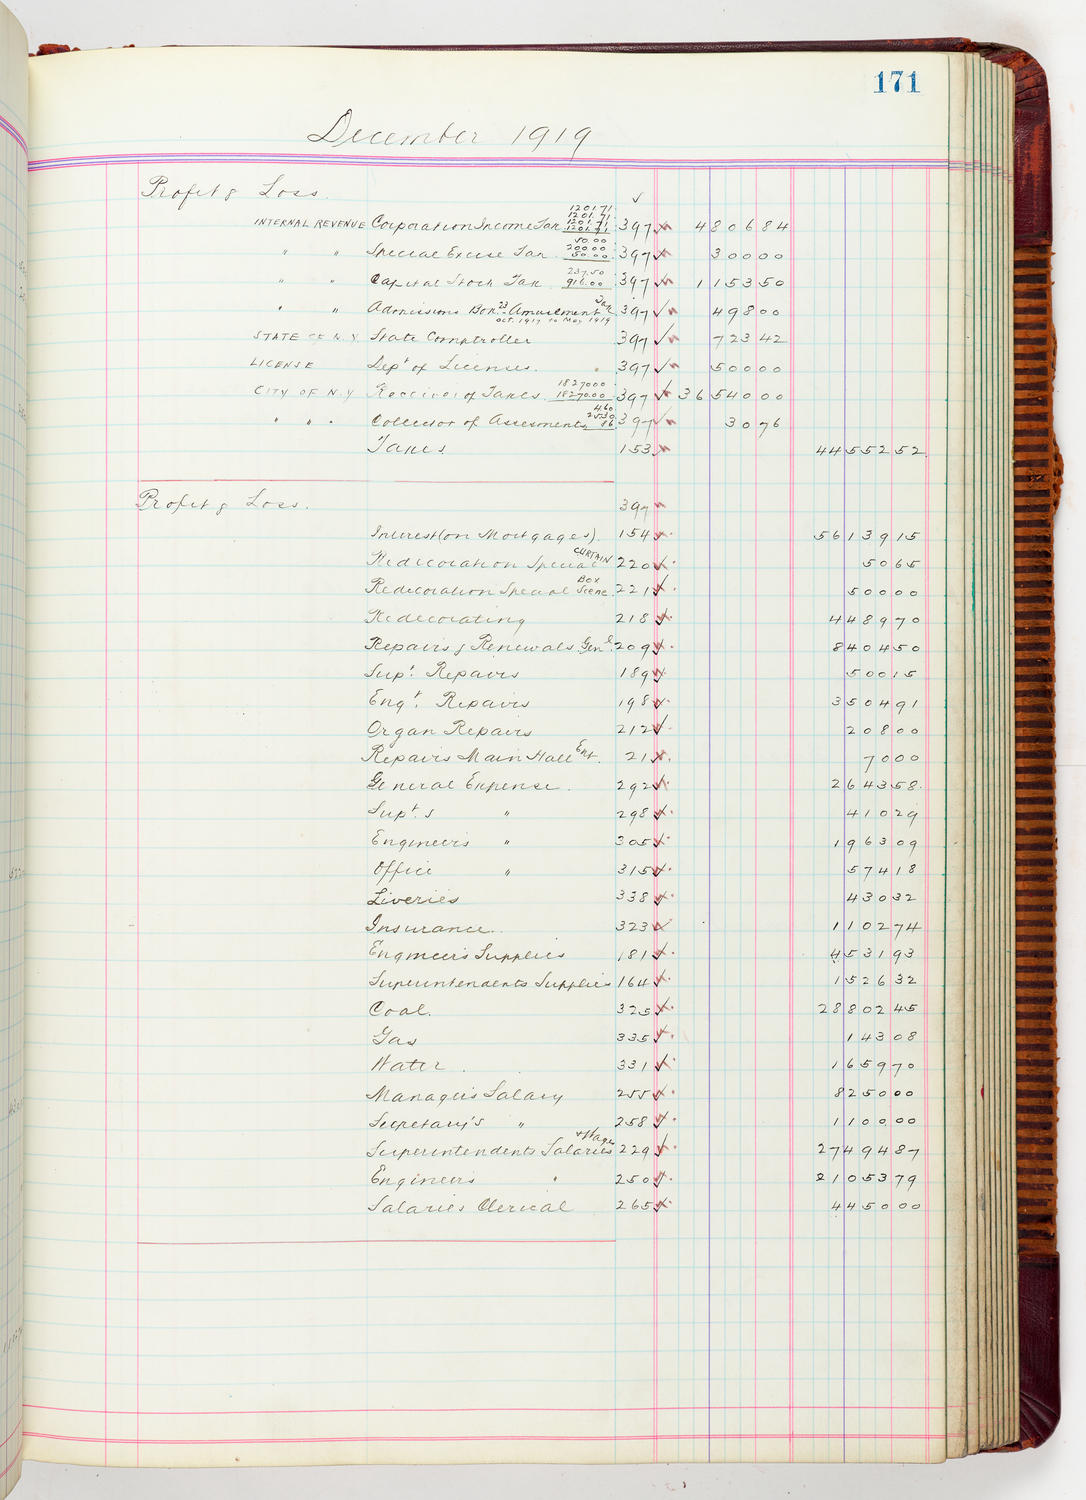 171
December 1919
Profit & Loss.
1201.71
1201.71
1201.71
INTERNAL REVENUE Corporation Income Tax 1201.71 397 480684
50.00
200.00
" " Special Excise Tax 50.00 397 30000
237.50
" " Capital Stock Tax 916.00 397 115350
" " Admissions Box 23 - Amusement Tax 397 49800
Oct. 1917 to May 1919
STATE OF N.Y. State Comptroller 397 72342
LICENSE Dept of Licenses. 397 50000
18270.00
CITY OF N.Y Receiver of Taxes 18270.00 397 3654000
4.60
25.30
" " " Collector of Assesments 86 397 3076
Taxes 153 4455252
Profit & Loss. 397
Interest (on Mortgages). 154 5613915
Redecoration Special CURTAIN 220 5065
Redecoration Special Box Scene 221 50000
Redecorating 218 448970
Repairs & Renewals Genl. 209 840450
Supt. Repairs 189 50015
Engr. Repairs 198 350491
Organ Repairs 212 20800
Repairs Main Hall Ent. 21 7000
General Expense. 292 264358
Supt.s " 298 41029
Engineers " 305 196309
Office " 315 57418
Liveries 338 43032
Insurance. 323 110274
Engineers Supplies 181 453193
Superintendents Supplies 164 152632
Coal. 325 2880245
Gas 335 14308
Water. 331 165970
Managers Salary 255 825000
Secretary's " 258 110000
Superintendents Salaries + Wages 229 2749487
Engineers " 250 2105379
Salaries Clerical 265 445000